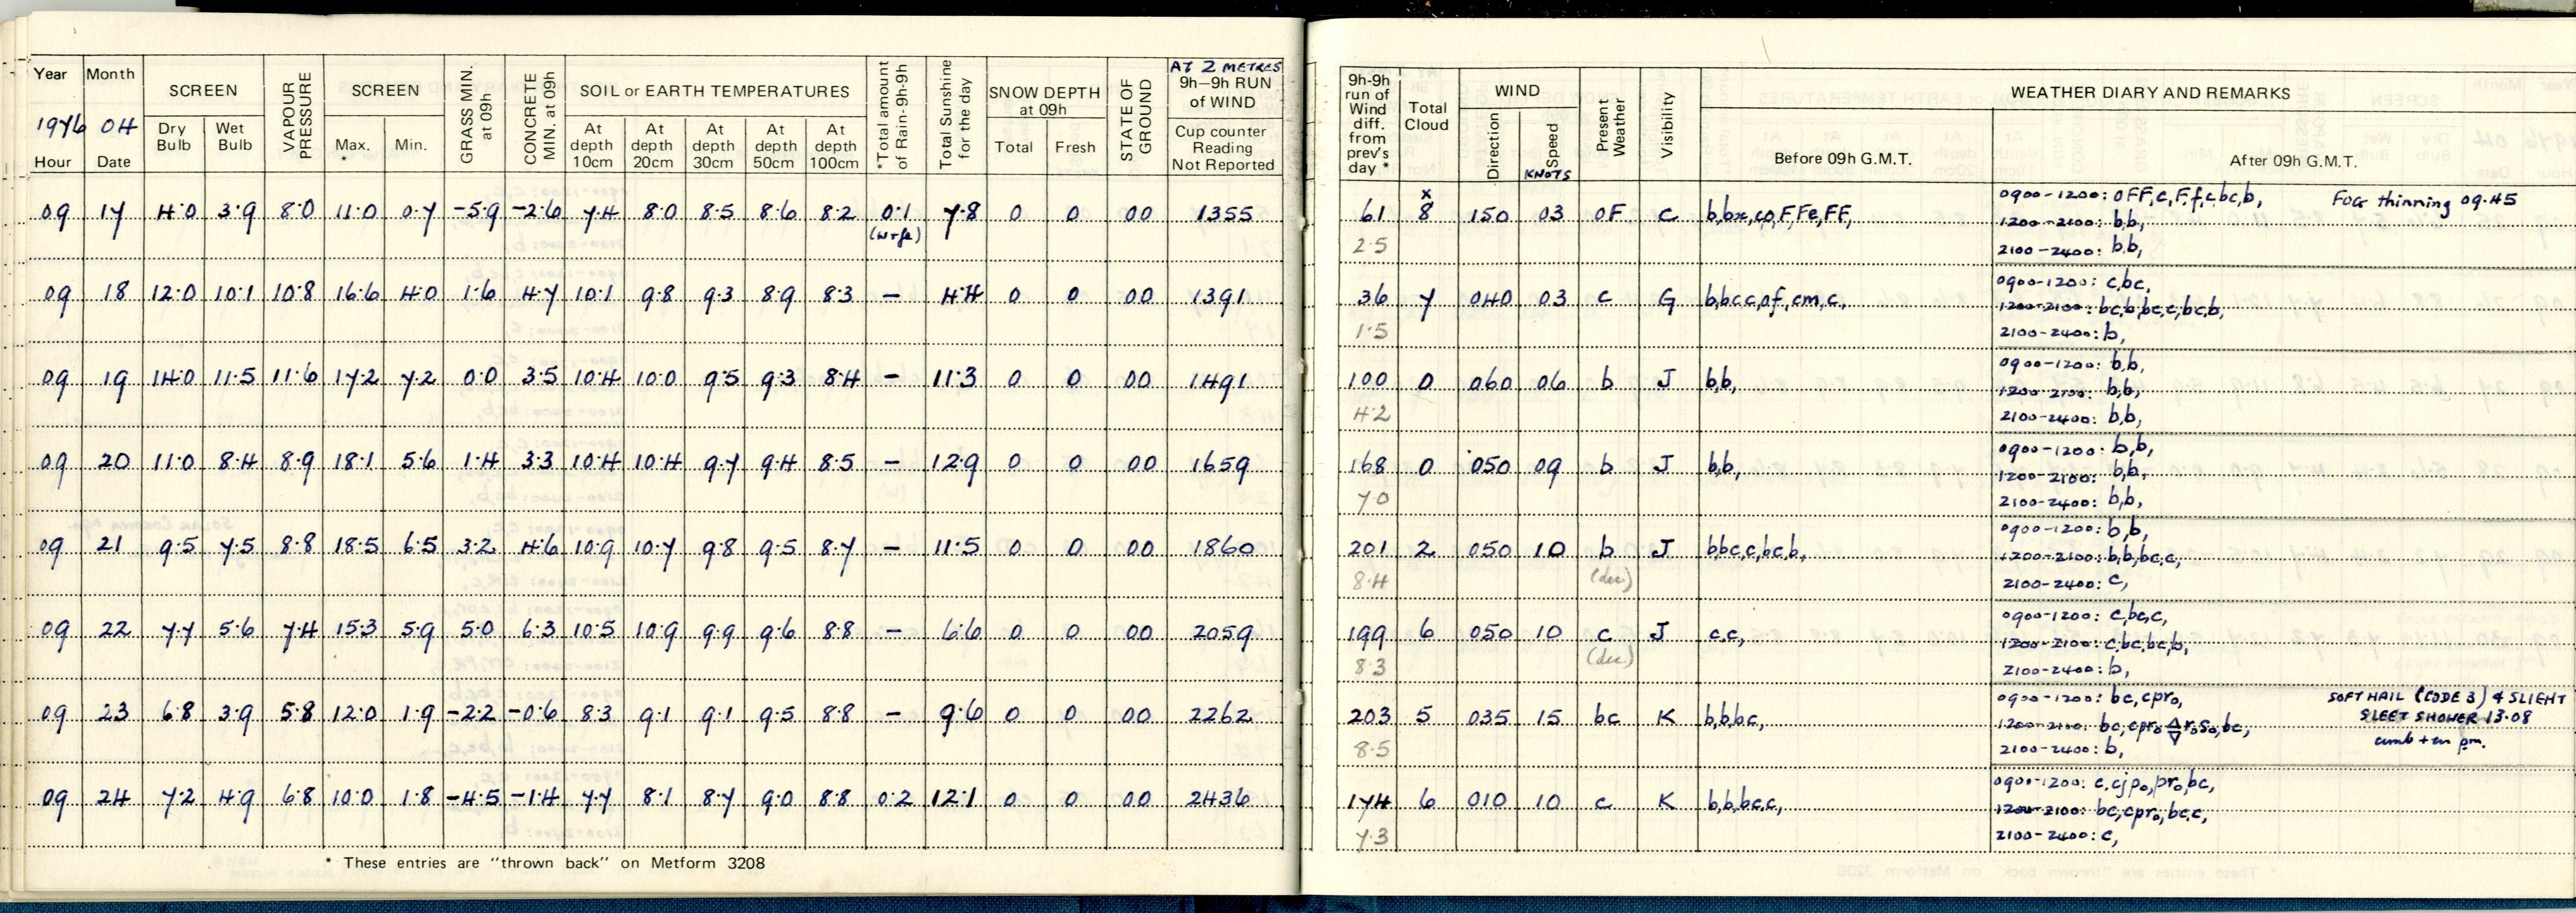 Year Month SCREEN VAPOUR PRESSURE SCREEN GRASS MIN. at 09h CONCRETE MIN. at 09h SOIL or EARTH TEMPERATURES *Total amount of Rain-9h-9h Total Sunshine for the day SNOW DEPTH at 09h STATE OF GROUND AT 2 METRES 9h–9h RUN of WIND
1976 04 Dry Bulb Wet Bulb Max. * Min. At depth 10cm At depth 20cm At depth 30cm At depth 50cm At depth 100cm Total Fresh Cup counter Reading Not Reported
Hour Date
09 17 4·0 3·9 8·0 11·0 0·7 -5·9 -2·6 7·4 8·0 8·5 8·6 8·2 0·1 7·8 0 0 00 1355
(w+fe)
09 18 12·0 10·1 10·8 16·6 4·0 1·6 4·7 10·1 9·8 9·3 8·9 8·3 – 4·4 0 0 00 1391
09 19 14·0 11·5 11·6 17·2 7·2 0·0 3·5 10·4 10·0 9·5 9·3 8·4 – 11·3 0 0 00 1491
09 20 11·0 8·4 8·9 18·1 5·6 1·4 3·3 10·4 10·4 9·7 9·4 8·5 – 12·9 0 0 00 1659
09 21 9·5 7·5 8·8 18·5 6·5 3·2 4·6 10·9 10·7 9·8 9·5 8·7 – 11·5 0 0 00 1860
09 22 7·7 5·6 7·4 15·3 5·9 5·0 6·3 10·5 10·9 9·9 9·6 8·8 – 6·6 0 0 00 2059
09 23 6·8 3·9 5·8 12·0 1·9 -2·2 -0·6 8·3 9·1 9·1 9·5 8·8 – 9·6 0 0 00 2262
09 24 7·2 4·9 6·8 10·0 1·8 -4·5 -1·4 7·7 8·1 8·7 9·0 8·8 0·2 12·1 0 0 00 2436
* These entries are "thrown back" on Metform 3208
9h-9h run of Wind diff. from prev's day * Total Cloud WIND Present Weather Visibility WEATHER DIARY AND REMARKS
Direction Speed KNOTS Before 09h G.M.T. After 09h G.M.T.
61 x 8 150 03 oF C b,bx,co,F,Fe,FF, 0900-1200: oFF,c,F,f,c,bc,b, FOG thinning 09.45
2·5 1200-2100: b,b,
2100-2400: b,b,
36 7 040 03 c G b,bc,c,of,cm,c, 0900-1200: c,bc,
1·5 1200-2100: bc,b,bc,c,bc,b,
2100-2400: b,
100 0 060 06 b J b,b, 0900-1200: b,b,
4·2 1200-2100: b,b,
2100-2400: b,b,
168 0 050 09 b J b,b, 0900-1200: b,b,
7·0 1200-2100: b,b,
2100-2400: b,b,
201 2 050 10 b J b,bc,c,bc,b, 0900-1200: b,b,
8·4 (dec.) 1200-2100: b,b,bc,c,
2100-2400: c,
199 6 050 10 c J c,c, 0900-1200: c,bc,c,
8·3 (dec.) 1200-2100: c,bc,bc,b,
2100-2400: b,
203 5 035 15 bc K b,b,bc, 0900-1200: bc,cpr₀, SOFT HAIL (CODE 3) & SLIGHT
8·5 1200-2100: bc,cpr₀ r₀s₀,bc, SLEET SHOWER 13.08
2100-2400: b, pm.
174 6 010 10 c K b,b,bc,c, 0900-1200: c,cjp₀,pr₀,bc,
7·3 1200-2100: bc,cpr₀,bc,c,
2100-2400: c,